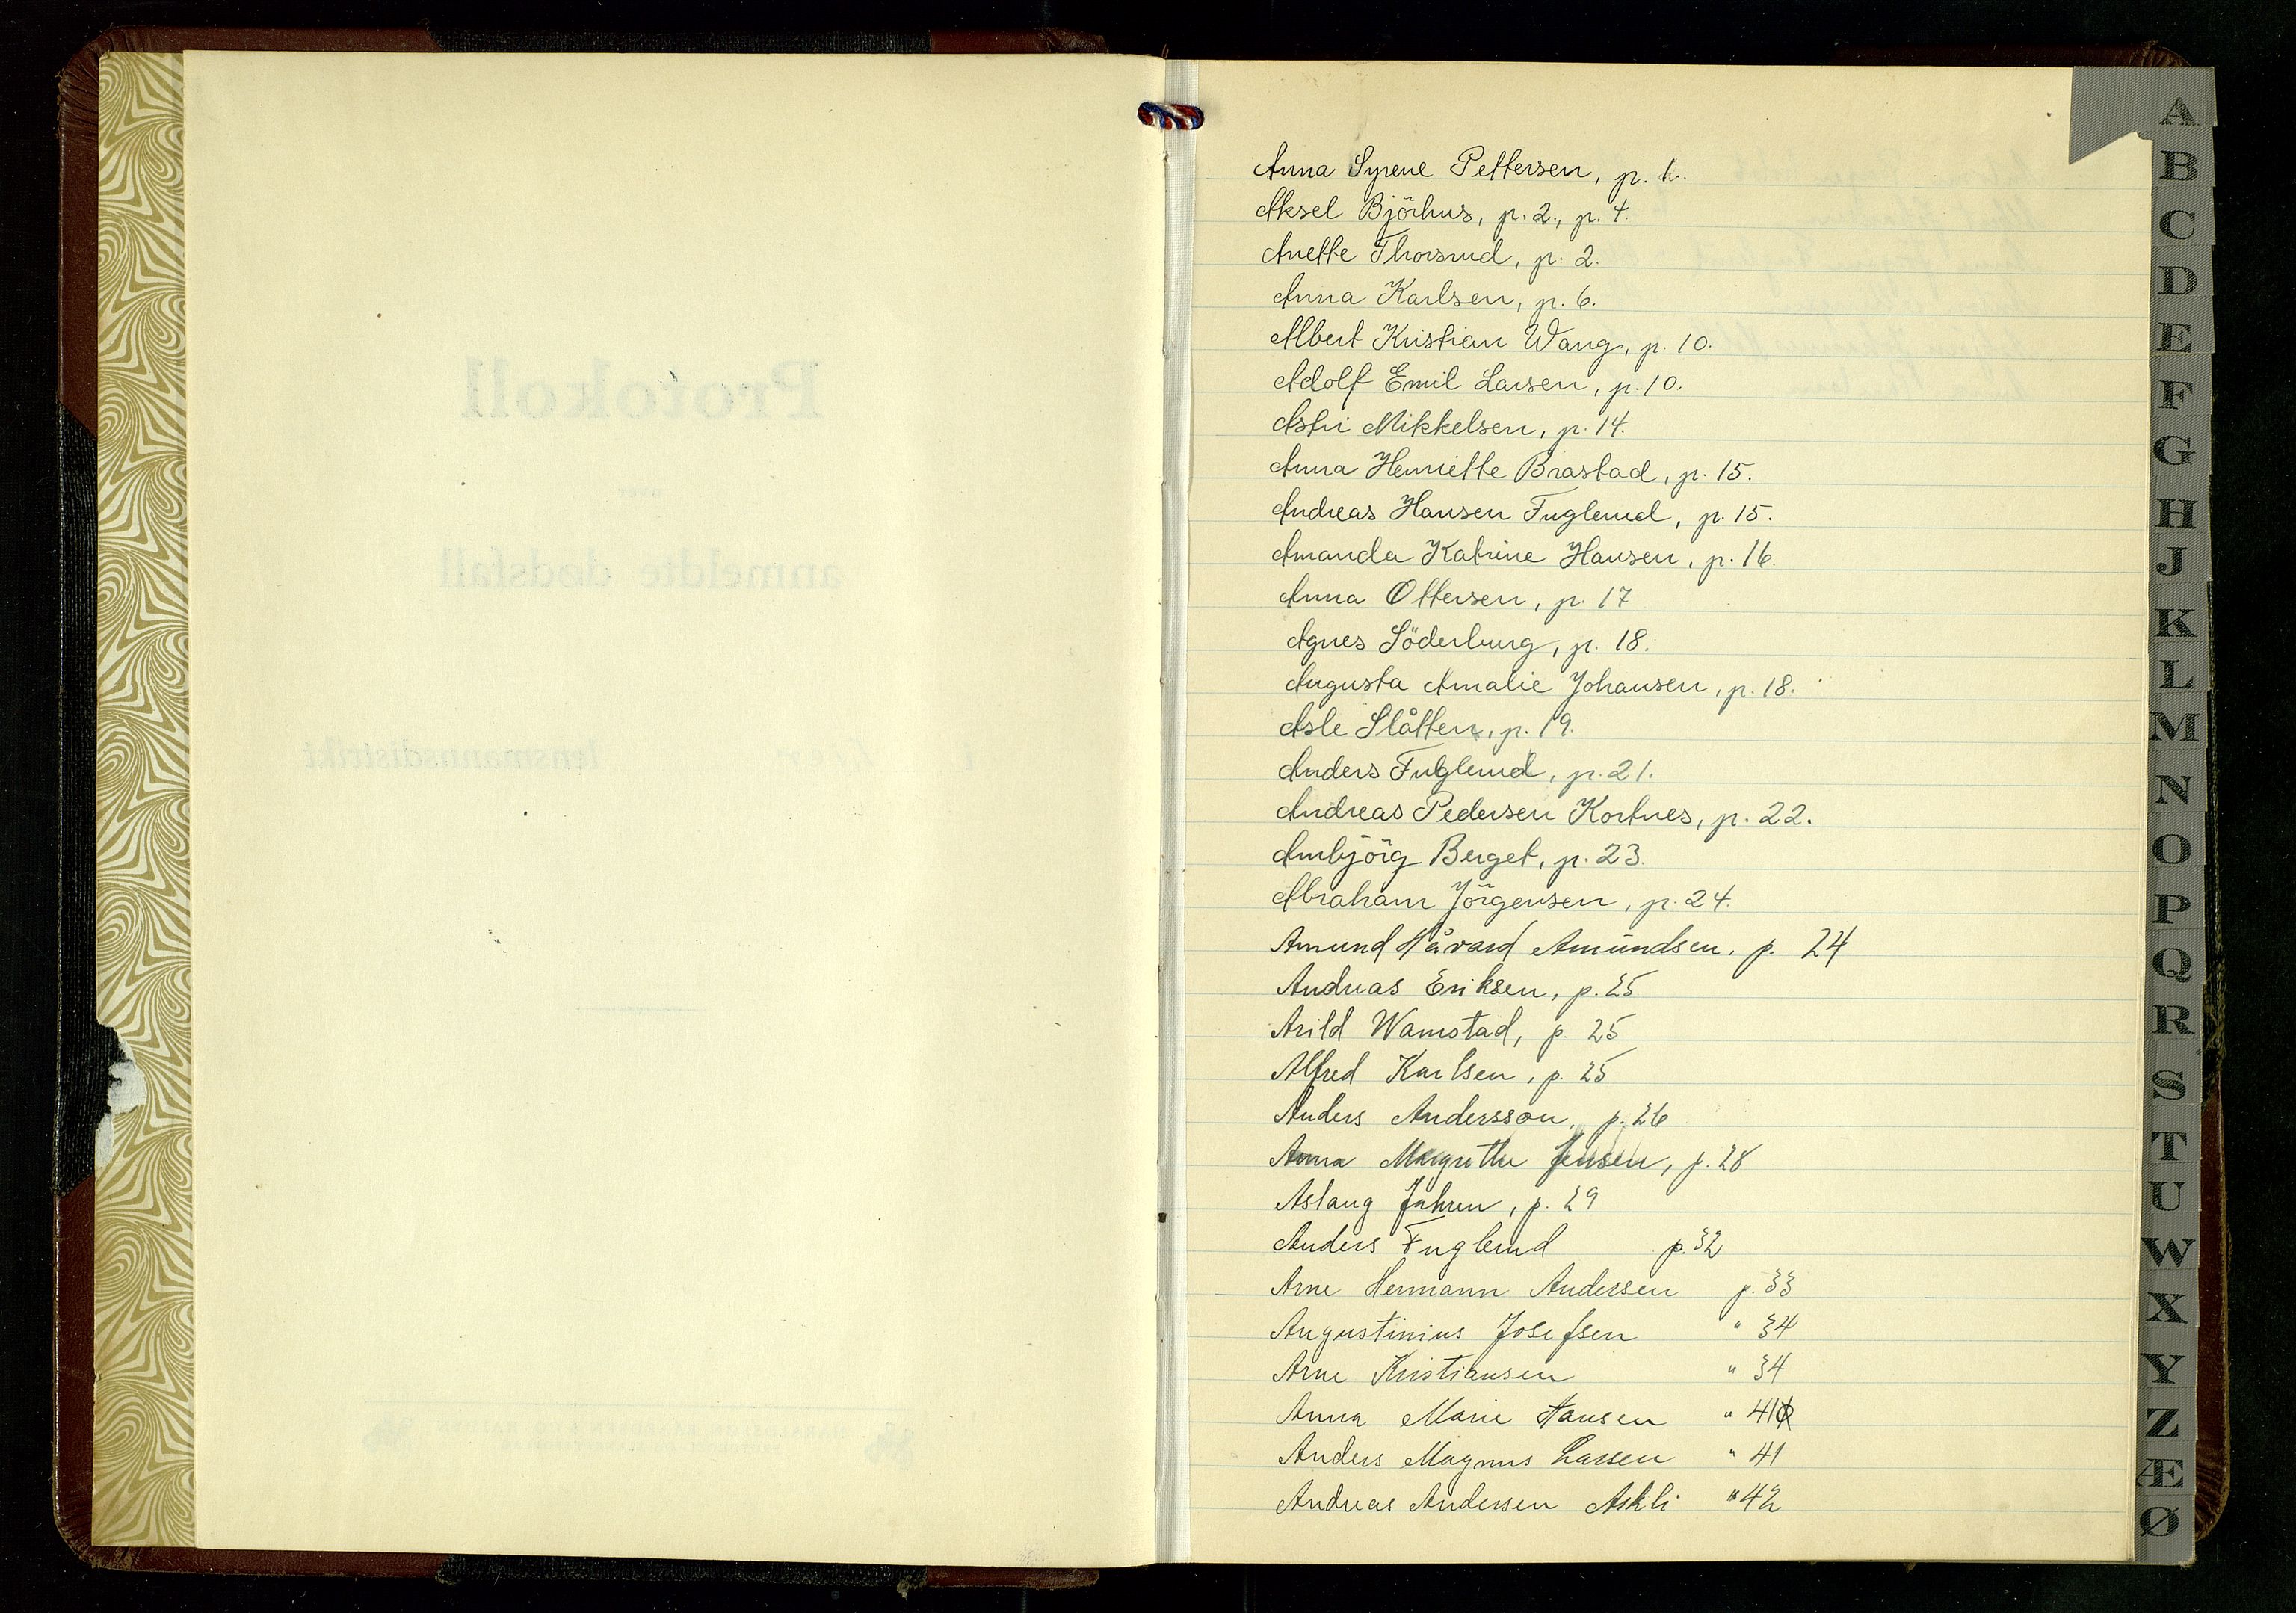 Anna Syrene Pettersen, p. 1.
Aksel Björhus, p. 2., p. 4.
Anette Thorsrud, p. 2.
Anna Karlsen, p. 6.
Albert Kristian Wang, p. 10.
Adolf Emil Larsen, p. 10.
Astri Mikkelsen, p. 14.
Anna Henriette Brastad, p. 15.
Andreas Hansen Fuglerud, p. 15.
Amanda Katrine Hansen, p. 16.
Anna Ottersen, p. 17
Agnes Söderburg, p. 18.
Augusta Amalie Johansen, p. 18.
Asle Slåtten, p. 19.
Anders Fuglerud, p. 21.
Andreas Pedersen Kortnes, p. 22.
Ambjörg Berget, p. 23.
Abraham Jörgensen, p. 24.
Amund Håvard Amundsen, p. 24
Andreas Eriksen, p. 25
Arild Wamstad, p. 25
Alfred Karlsen, p. 25
Anders Andersson, p. 26
Anna Margrethe Jensen, p. 28
Aslaug Jahren, p. 29
Anders Fuglerud p. 32
Arne Hermann Andersen p. 33
Augustinius Josefsen " 34
Arne Kristiansen " 34
Anna Marie Hansen " 41
Anders Magnus Larsen " 41
Andreas Andersen Askli " 42
A
B
C
D
E
F
G
H
J
K
L
M
N
O
P
Q
R
S
T
U
W
X
Y
Z
Æ
Ø
Protokoll
over
anmeldte dødsfall
i Lier lensmannsdistrikt